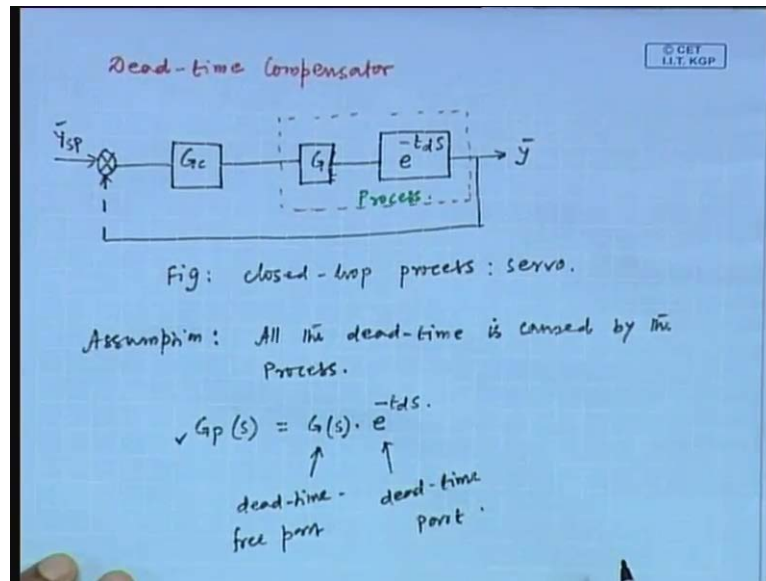 Dead-time Compensator
© CET
I.I.T. KGP
ȳSP
Gc
G
e^-tds
ȳ
Process.
Fig: closed-loop process: servo.
Assumption: All the dead-time is caused by the
Process.
✓ Gp(s) = G(s). e^-tds.
dead-time-
free part
dead-time
part.